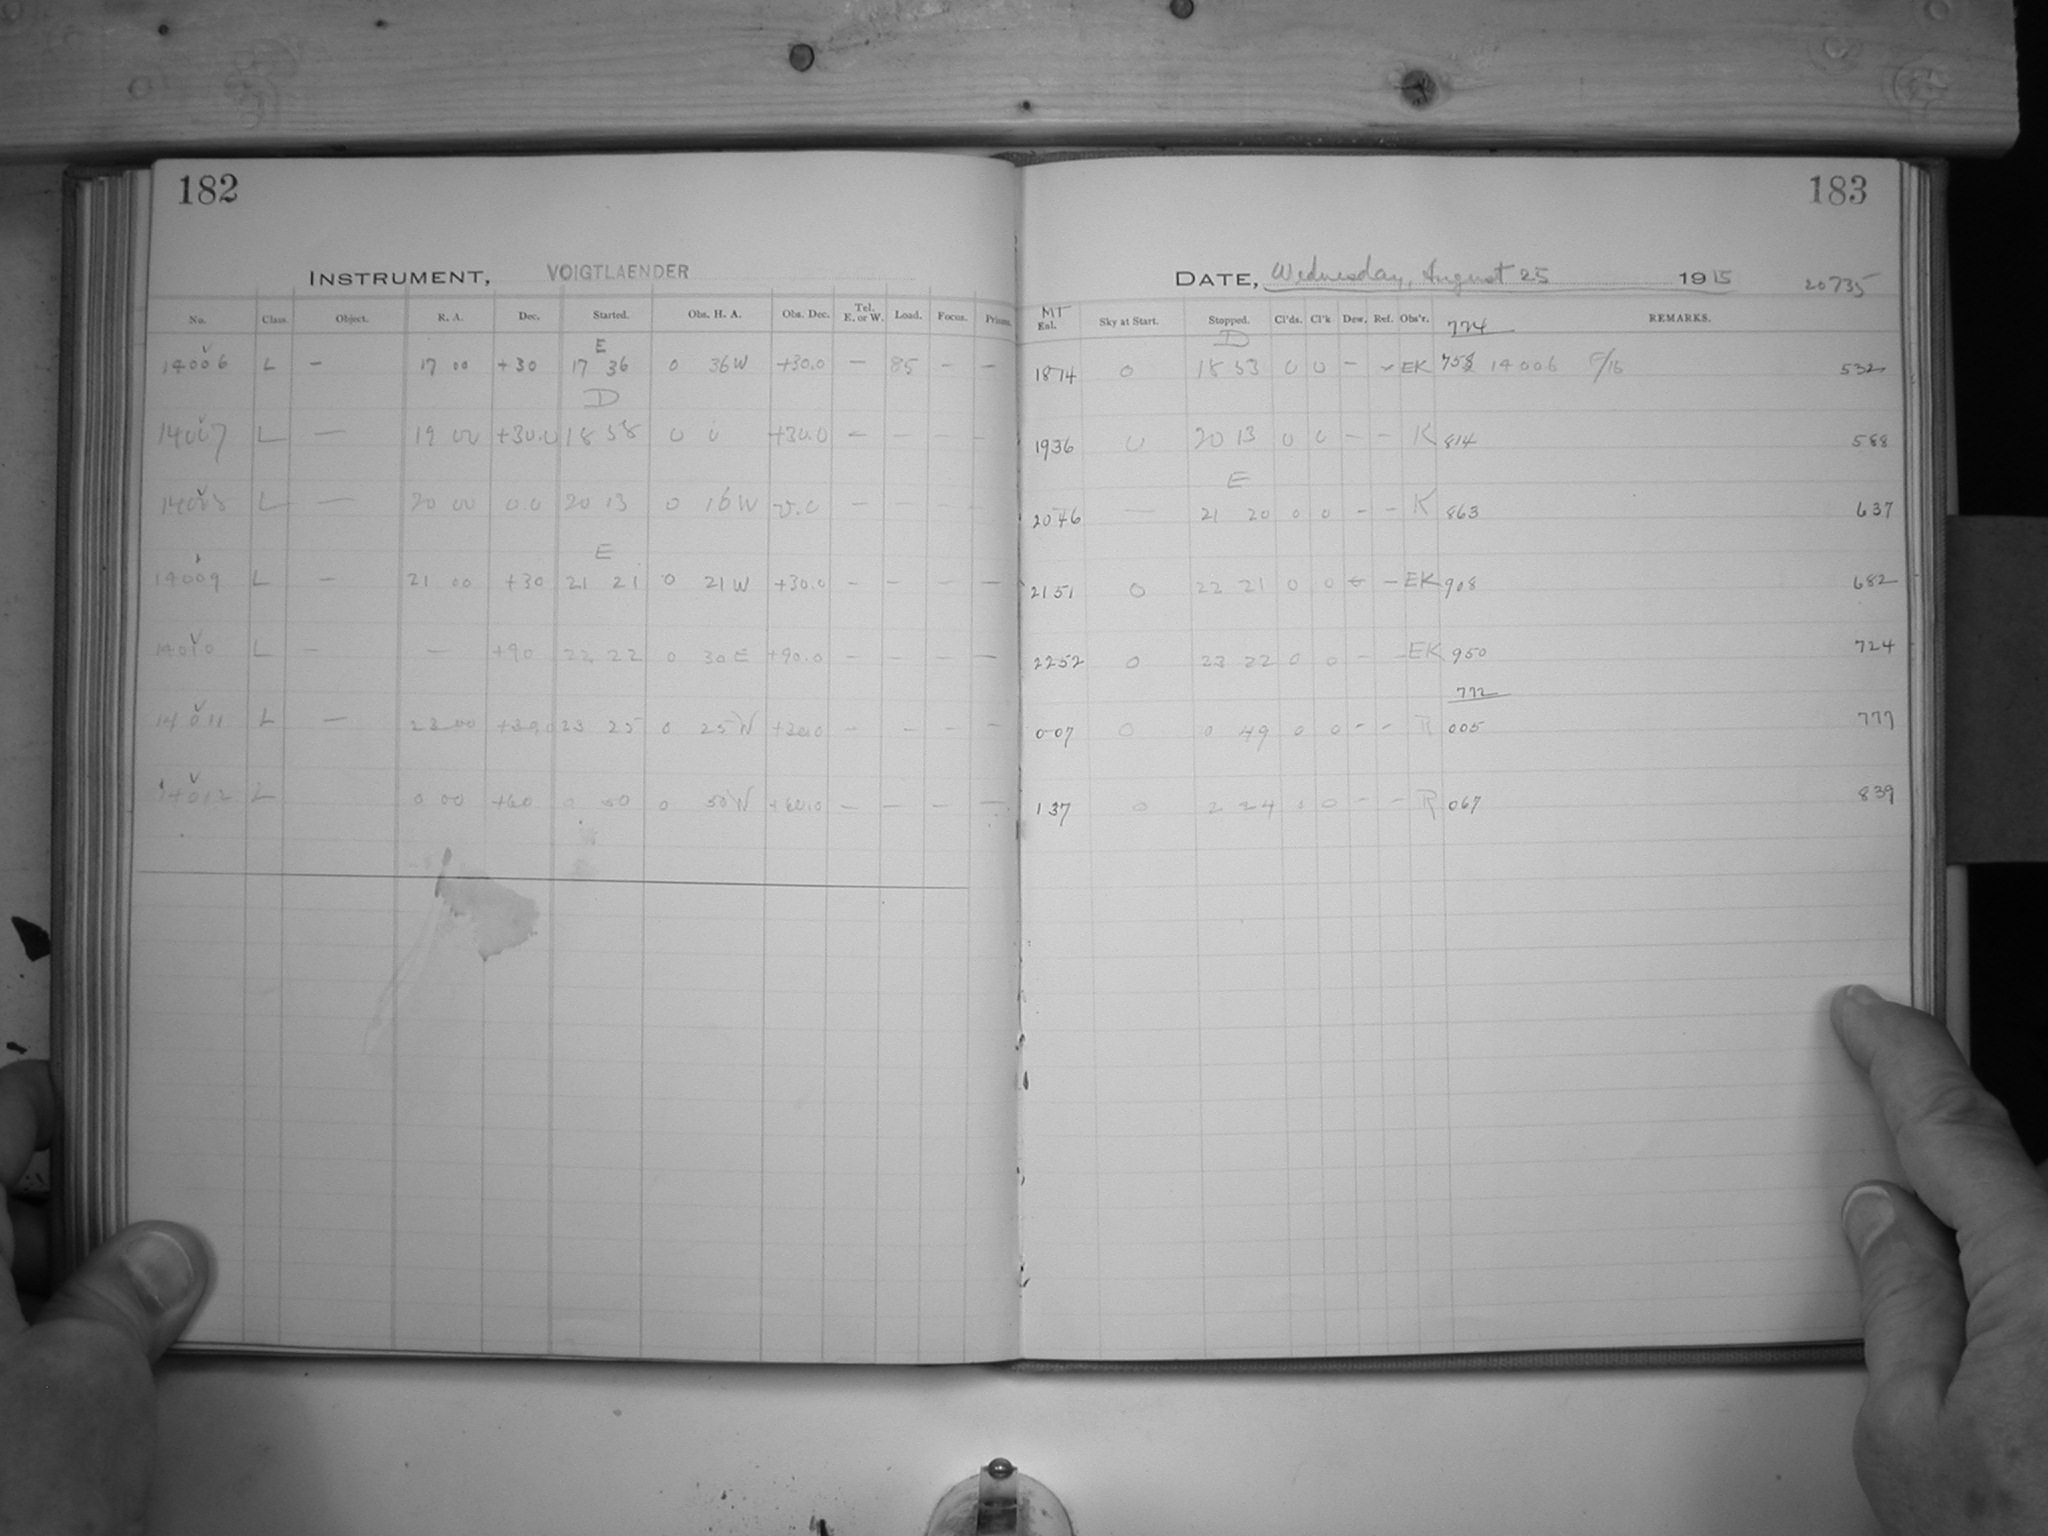 182
183
INSTRUMENT, VOIGTLAENDER
DATE, Wednesday, August 25 1915 20735
No. Class. Object. R. A. Dec. Started. Obs. H. A. Obs. Dec. Tel. E. or W. Load. Focus. Prism. MT Exl. Sky at Start. Stopped. Cl'ds. Cl'k Dew. Ref. Obs'r. REMARKS.
774
E D
14006 L — 17 00 +30 17 36 0 36W +30.0 — 85 — — 1814 0 18 53 0 0 — - EK 758 14006 F/15 532
D
14007 L — 19 00 +30.0 18 58 0 0 +30.0 — — — — 1936 0 20 13 0 0 — — K 814 588
E
14008 L — 20 00 0.0 20 13 0 16W 0.0 — — — — 2046 — 21 20 0 0 - - K 863 637
E
14009 L — 21 00 +30 21 21 0 21W +30.0 — — — — 2151 0 22 21 0 0 - — EK 908 682
14010 L — — +90 22 22 0 30E +90.0 — — — — 2252 0 23 22 0 0 - - EK 950 724
772
14011 L — 23 00 +30.0 23 25 0 25W +30.0 — — — — 0 07 0 0 49 0 0 - - R 005 777
14012 L 0 00 +60 0 50 0 50W +60.0 — — — — 1 37 0 2 24 0 0 - - R 067 839